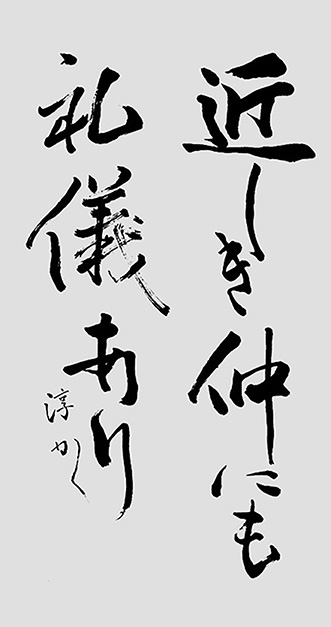 近しき仲にも
礼儀あり
淳かく